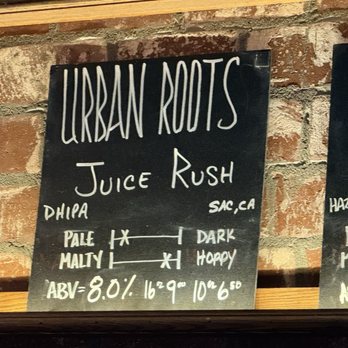 URBAN ROOTS
JUICE RUSH
DHIPA SAC, CA
PALE |-X------| DARK
MALTY |------X-| HOPPY
ABV=8.0% 16oz 9.00 10oz 6.50
HA